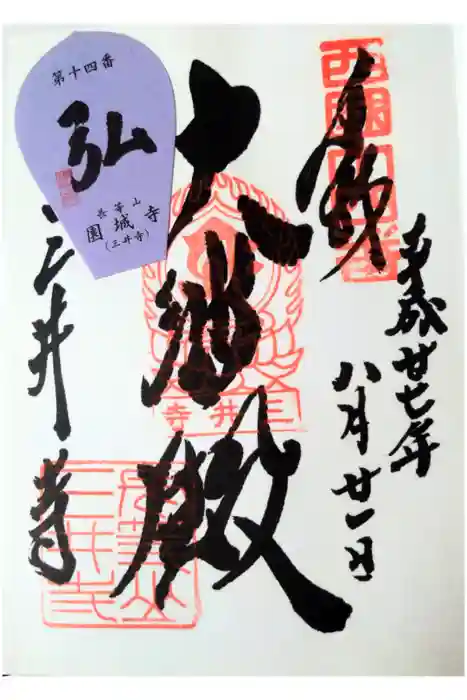 西国十四番
奉拝
平成廿七年
八月廿一日
大悲殿
三井寺
三井寺
長等山
三井寺
第十四番
弘
長等山
園城寺
(三井寺)